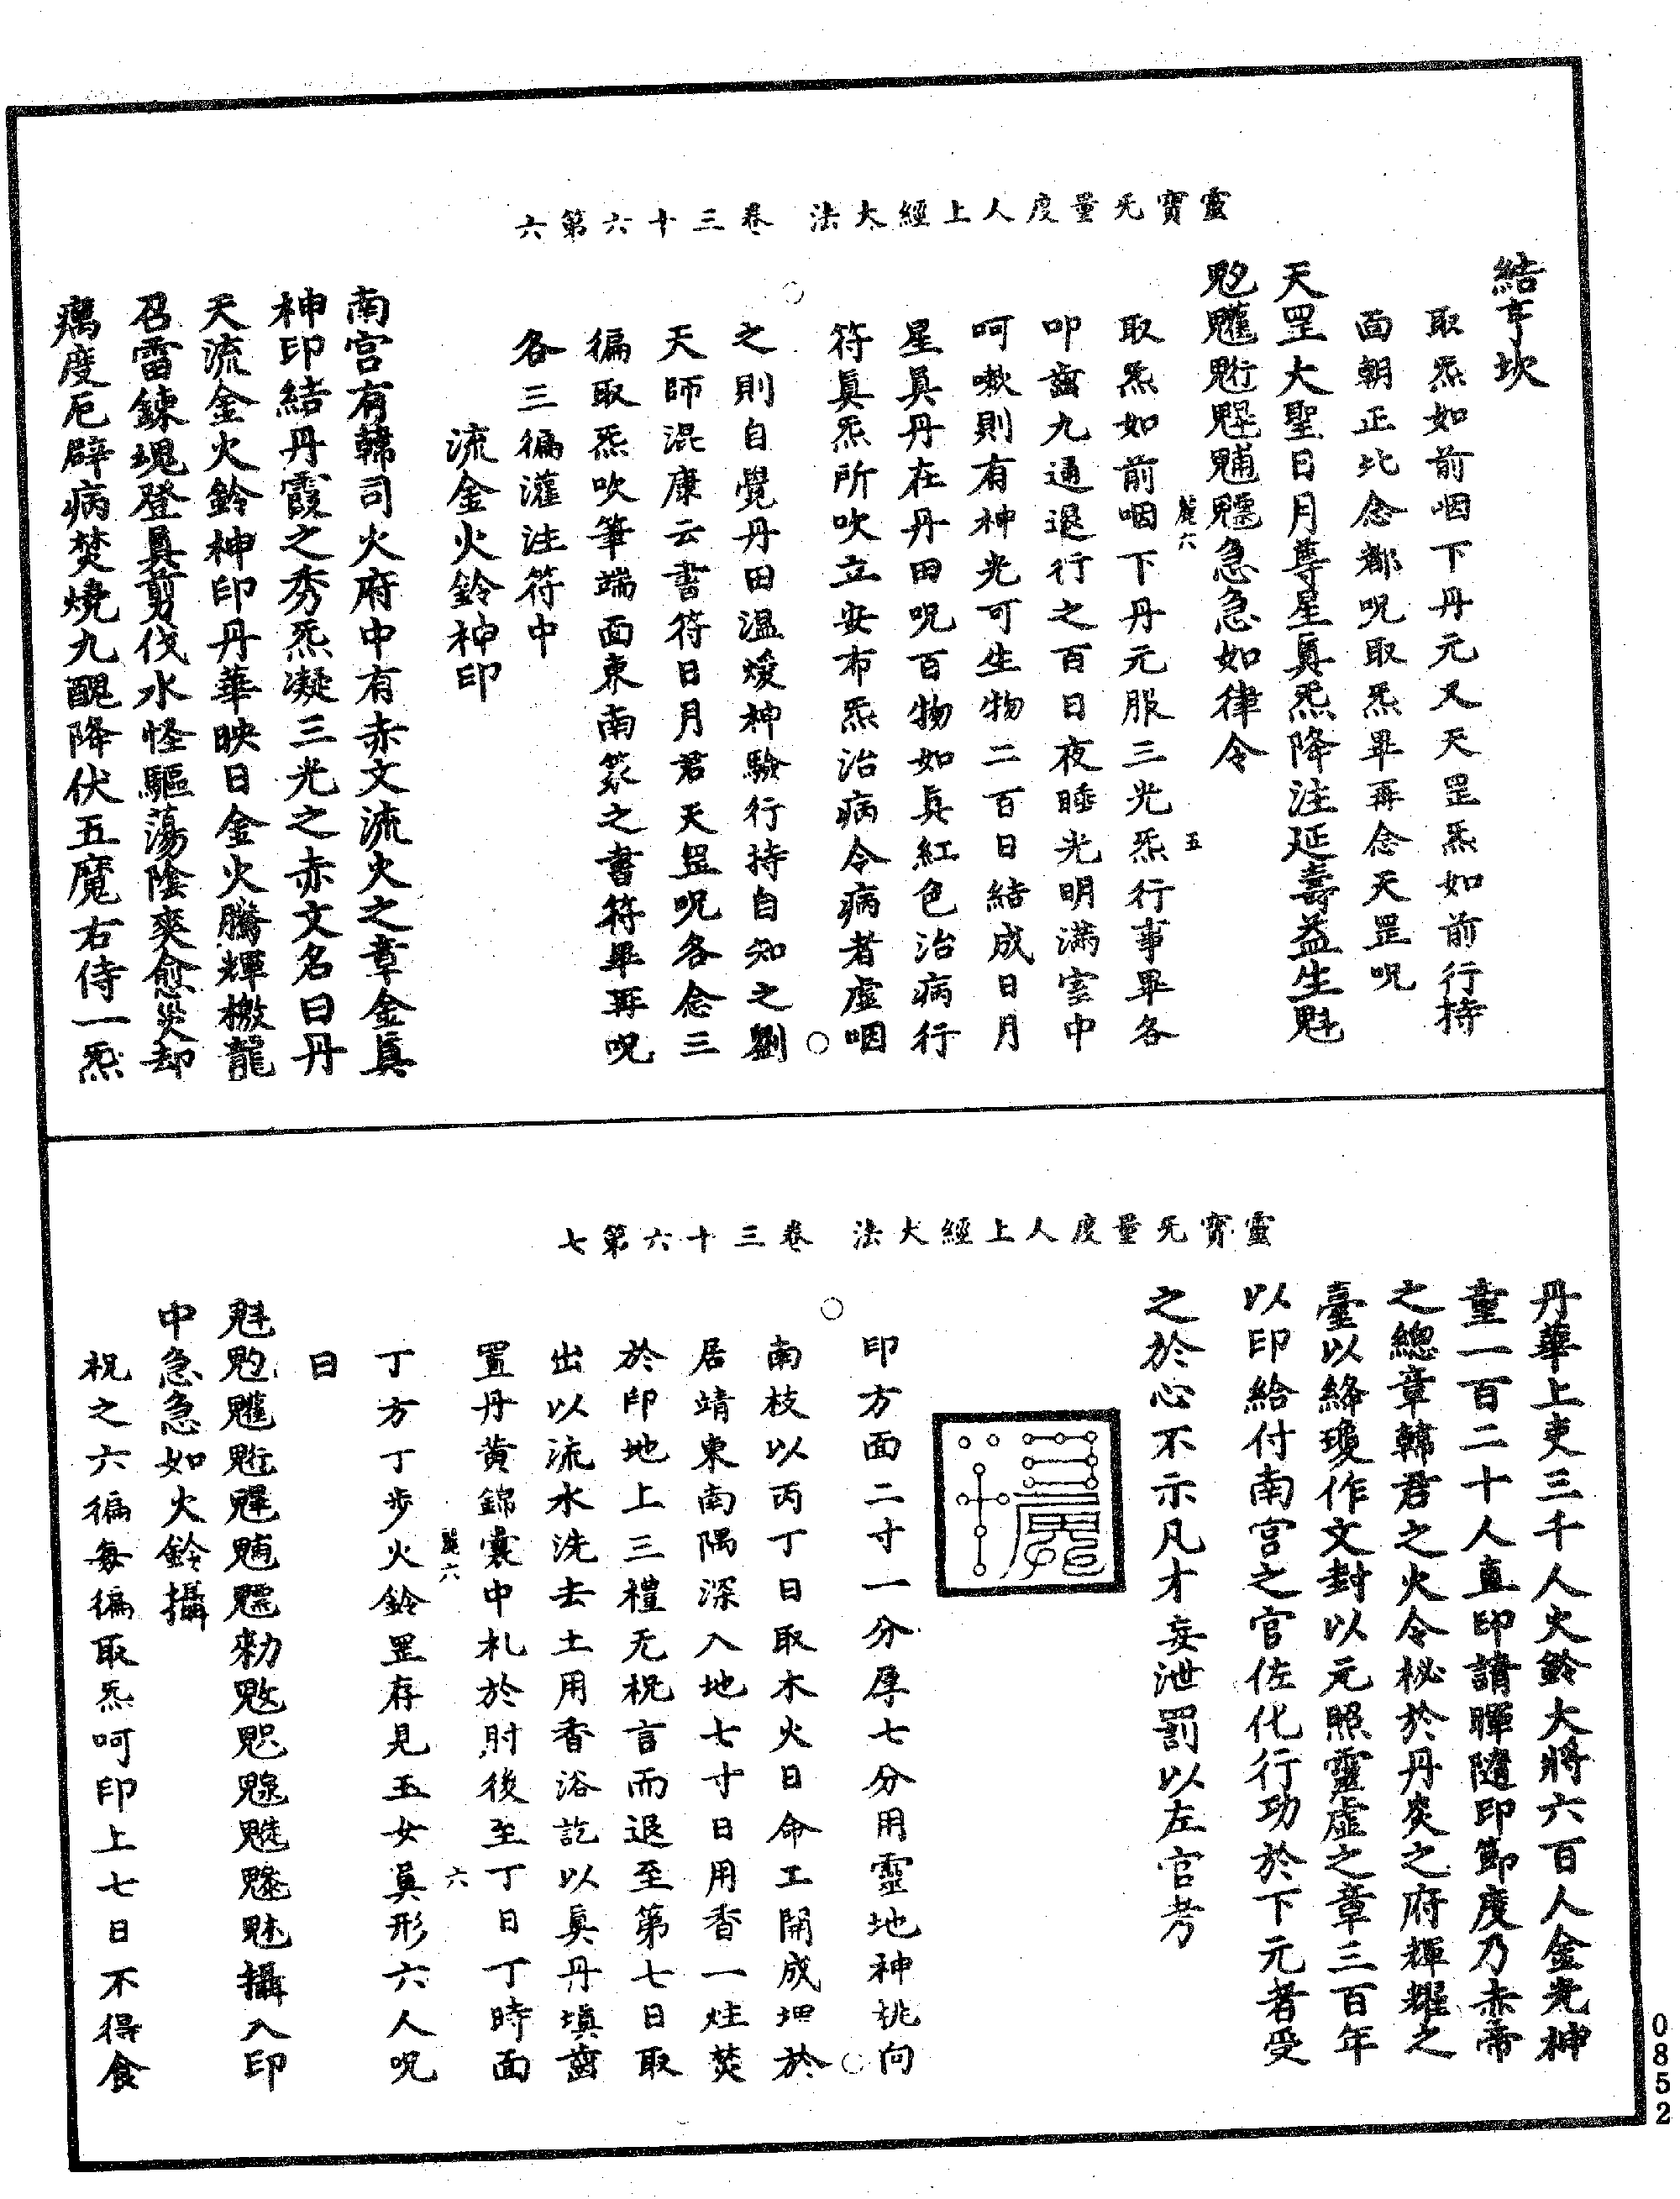 靈寶无量度人上經大法　卷三十六第六
結亨坎
取炁如前咽下丹元又天罡炁如前行持
面朝正北念都呪取炁畢再念天罡呪
天罡大聖日月尊星眞炁降注延壽益生魁
䰢䰡魓急急如律令
取炁如前咽下丹元服三光炁行事畢各
叩齒九通退行之百日夜睡光明滿室中
呵嗽則有神光可生物二百日結成日月
星眞丹在丹田呪百物如眞紅色治病行
符眞炁所吹立安布炁治病令病者虛咽
之則自覺丹田溫煖神驗行持自知之劉
天師混康云書符日月君天罡呪各念三
徧取炁吹筆端面東南篆之書符畢再呪
各三徧灌注符中
流金火鈴神印
南宫有韓司火府中有赤文流火之章金眞
神印結丹霞之秀炁凝三光之赤文名曰丹
天流金火鈴神印丹華映日金火騰輝檄龍
召雷鍊塊登眞剪伐水怪驅蕩陰爽愈災却
癘度厄辟病焚燒九醜降伏五魔右侍一炁
麗六　五
靈寶无量度人上經大法　卷三十六第七
丹華上吏三千人火鈴大將六百人金光神
童一百二十人直印請暉隨印節度乃赤帝
之總章韓君之火令秘於丹炎之府輝耀之
臺以絳瓊作文封以元照靈虛之章三百年
以印給付南宫之官佐化行功於下元者受
之於心不示凡才妄泄罰以左官考
印方面二寸一分厚七分用靈地神桃向
南枝以丙丁日取木火日命工開成埋於
居靖東南隅深入地七寸日用香一炷焚
於印地上三禮无祝言而退至第七日取
出以流水洗去土用香浴訖以眞丹塡齒
置丹黃錦囊中札於肘後至丁日丁時面
丁方丁步火鈴罡存見玉女眞形六人呪
曰
魁䰢䰡魓勑攝入印
中急急如火鈴攝
祝之六徧每徧取炁呵印上七日不得食
麗六　六
0852